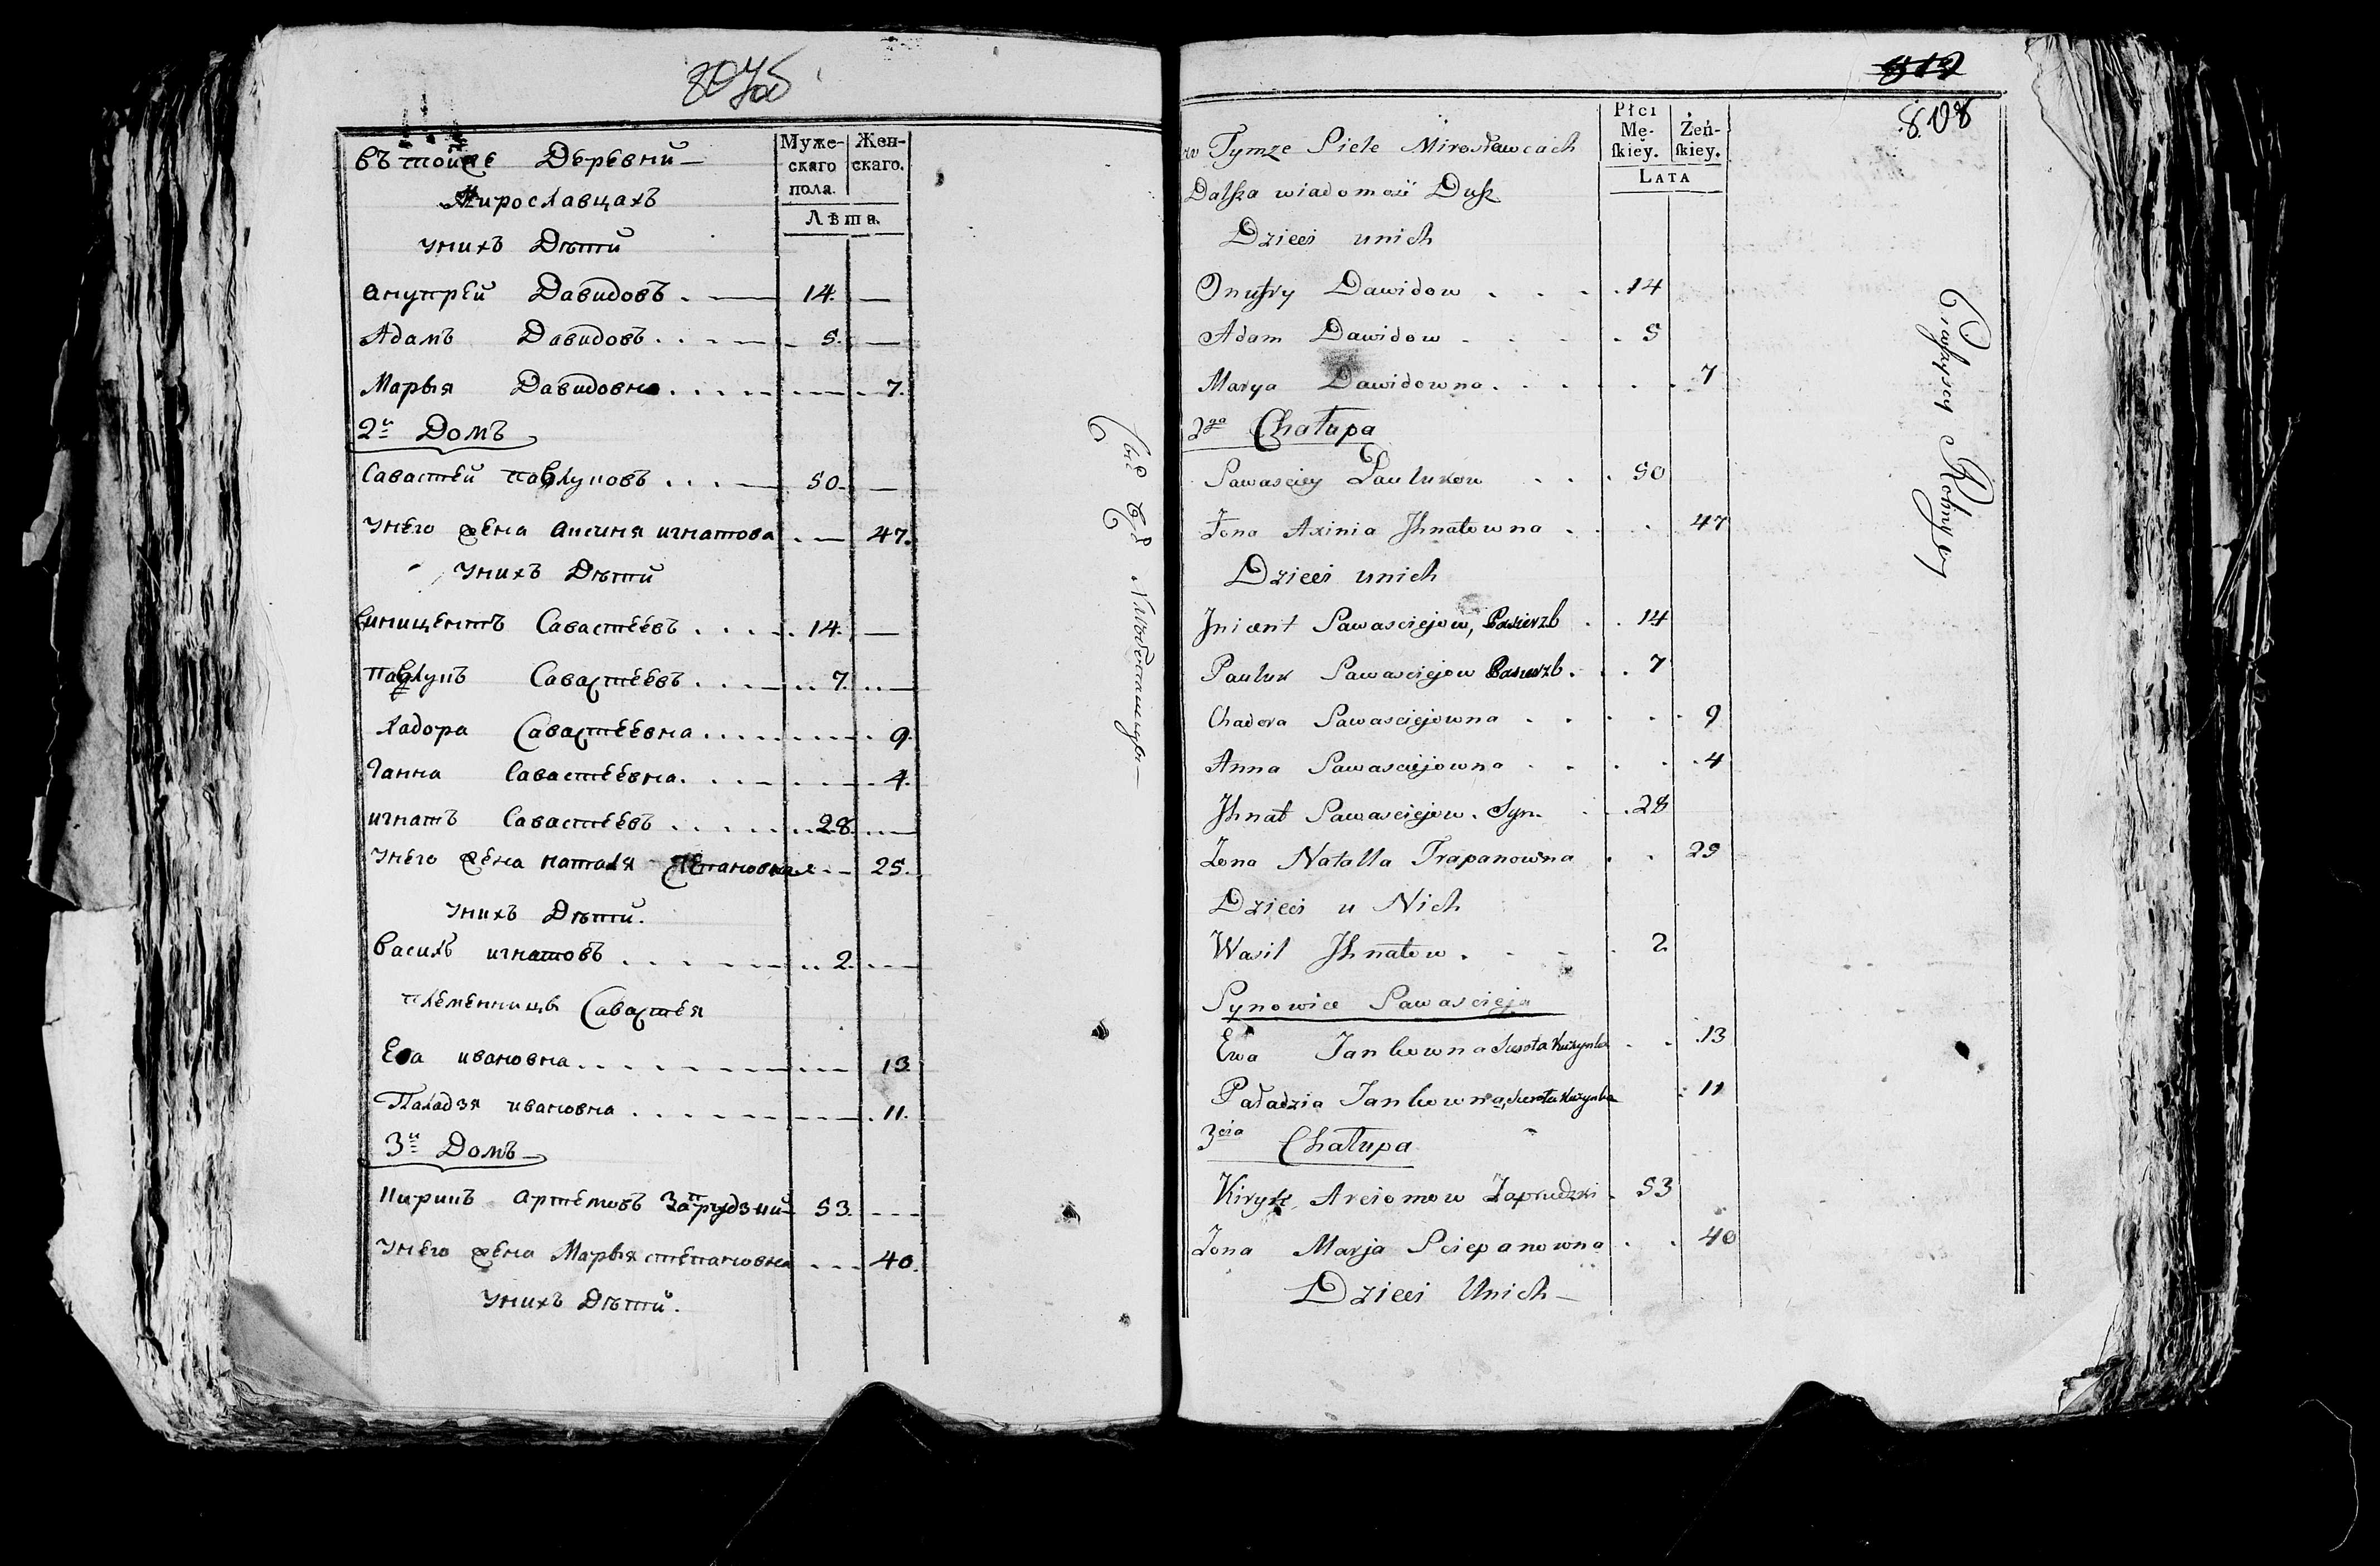 807об
въ тойже Деревни
Мирославцахъ
Муже-
скаго
пола.
Жен-
скаго.
Лѣта.
унихъ Дѣти
Анупрей Давидовъ 14
Адамъ Давидовъ 5
Марья Давидовна 7
2й Домъ
Савастей павлуковъ 50
Унего жена аксиня игнатова 47
Унихъ Дѣти
винцентъ Савастеевъ 14
павлукъ Савастеевъ 7
Хадора Савастеевна 9
Ганна Савастеевна 4
игнатъ Савастеевъ 28
Унего жена наталя 25
Унихъ Дѣти
Василь игнатовъ 2
племенницы Савастея
Ева ивановна 13
Паладзя ивановна 11
3й Домъ
Кирикъ артемовъ Запрудзкий 53
Унего жена Марья степановна 40
Унихъ Дѣти
812
808
w Tymze Siele Mirosławcach
Dalsza wiadomosć Dusz
Płci
Mę-
skiey.
Żeń-
skiey.
LATA
Dzieci unich
Onufry Dawidow 14
Adam Dawidow 5
Marya Dawidowna 7
2ga Chałupa
Sawasciey Paulukow 50
Żona Axinia Jhnatowna 47
Dzieci unich
Jnicent Sawasciejow, Pasierzb 14
Pauluk Sawasciejow Pasierzb 7
Chadora Sawasciejowna 9
Anna Sawasciejowna 4
Jhnat Sawasciejow. Syn 28
Żona Natalla Trapanowna 25
Dzieci u Nich
Wasil Jhnatow 2
Synowice Sawascieja
Ewa Jankowna Sierota Kuzynka 13
Paładzia Jankowna, Sierota Kuzynka 11
3cia Chałupa
Kiryk Arciomow Zaprudzki 53
Żona Marja Sciepanowna 40
Dzieci Unich